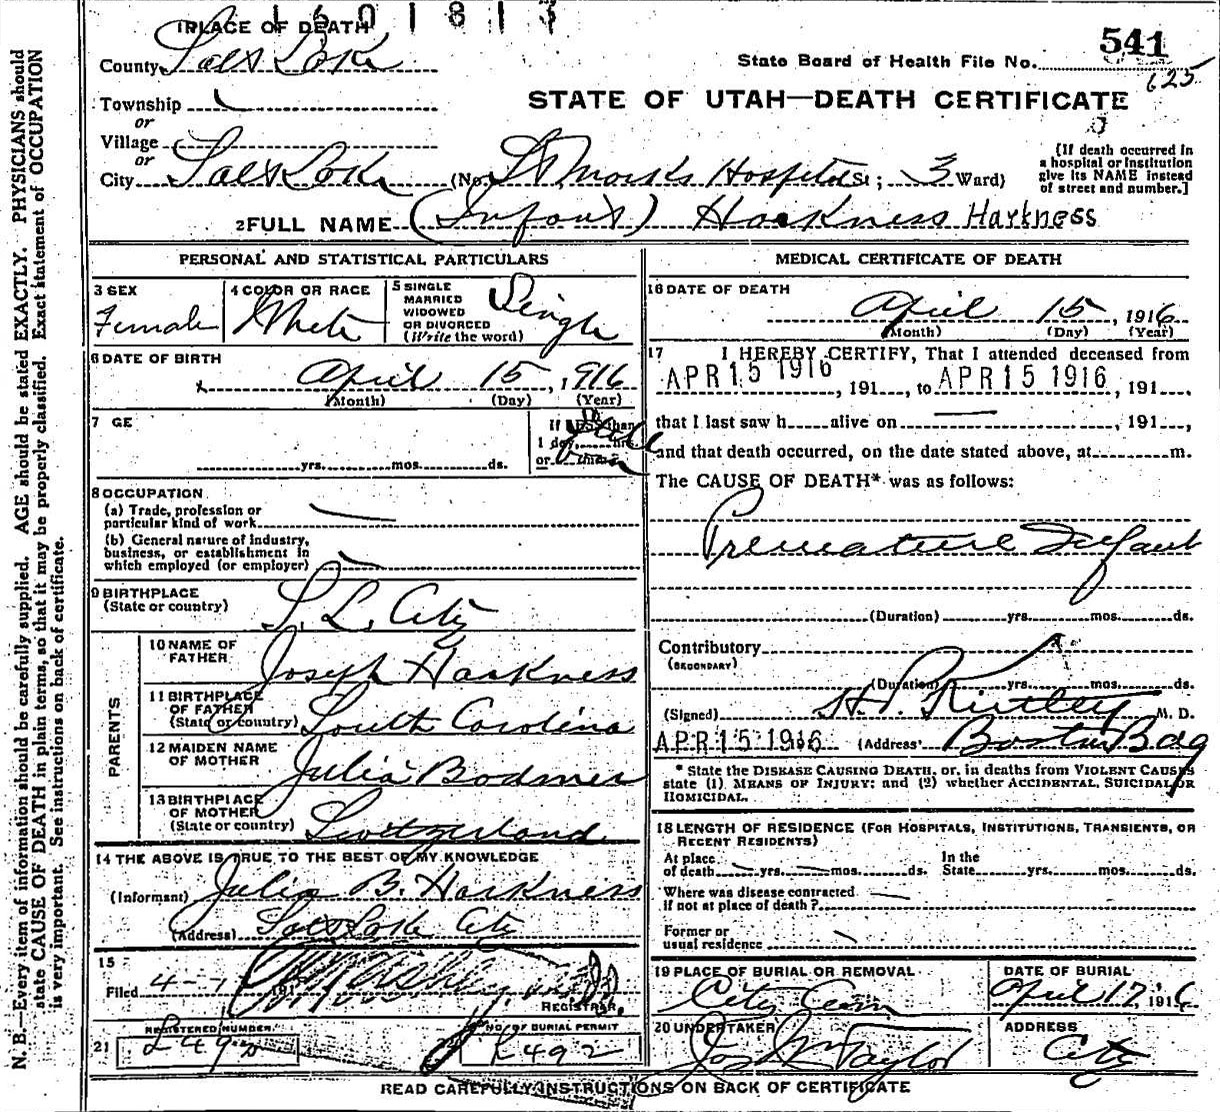 1601813
1 PLACE OF DEATH
County Salt Lake
Township
or
Village
or
City Salt Lake (No. St Marks Hospital St; 3 Ward)
541
State Board of Health File No.
625
STATE OF UTAH—DEATH CERTIFICATE
[If death occurred in
a hospital or institution
give its NAME instead
of street and number.]
2 FULL NAME (Infant) Harkness Harkness
PERSONAL AND STATISTICAL PARTICULARS
3 SEX
Female
4 COLOR OR RACE
White
5 SINGLE
MARRIED
WIDOWED
OR DIVORCED
(Write the word)
Single
6 DATE OF BIRTH
April 15, 1916
(Month) (Day) (Year)
7 GE
yrs. mos. ds.
If LESS than
1 day, hrs
or min.
8 OCCUPATION
(a) Trade, profession or
particular kind of work
(b) General nature of industry,
business, or establishment in
which employed (or employer)
9 BIRTHPLACE
(State or country)
S. L. City
PARENTS
10 NAME OF
FATHER
Joseph Harkness
11 BIRTHPLACE
OF FATHER
(State or country)
South Carolina
12 MAIDEN NAME
OF MOTHER
Julia Bodmer
13 BIRTHPLACE
OF MOTHER
(State or country)
Switzerland
14 THE ABOVE IS TRUE TO THE BEST OF MY KNOWLEDGE
(Informant) Julia B. Harkness
(Address) Salt Lake City
15
Filed 4-7 191
REGISTRAR.
REGISTERED NUMBER
21
NO. OF BURIAL PERMIT
L492
MEDICAL CERTIFICATE OF DEATH
16 DATE OF DEATH
April 15, 1916
(Month) (Day) (Year)
17 I HEREBY CERTIFY, That I attended deceased from
APR 15 1916, 191, to APR 15 1916, 191,
that I last saw h alive on , 191,
and that death occurred, on the date stated above, at m.
The CAUSE OF DEATH* was as follows:
Premature Infant
(Duration) yrs. mos. ds.
Contributory
(SECONDARY)
(Duration) yrs. mos. ds.
(Signed) M. D.
APR 15 1916 (Address) Boston Bdg
* State the DISEASE CAUSING DEATH, or, in deaths from VIOLENT CAUSES
state (1) MEANS OF INJURY; and (2) whether ACCIDENTAL, SUICIDAL OR
HOMICIDAL.
18 LENGTH OF RESIDENCE (FOR HOSPITALS, INSTITUTIONS, TRANSIENTS, OR
RECENT RESIDENTS)
At place
of death yrs. mos. ds.
In the
State yrs. mos. ds.
Where was disease contracted
if not at place of death?
Former or
usual residence
19 PLACE OF BURIAL OR REMOVAL
City Cem
DATE OF BURIAL
April 17, 1916
20 UNDERTAKER
Jos Wm Taylor
ADDRESS
City
READ CAREFULLY INSTRUCTIONS ON BACK OF CERTIFICATE
N. B.—Every item of information should be carefully supplied. AGE should be stated EXACTLY. PHYSICIANS should
state CAUSE OF DEATH in plain terms, so that it may be properly classified. Exact statement of OCCUPATION
is very important. See instructions on back of certificate.